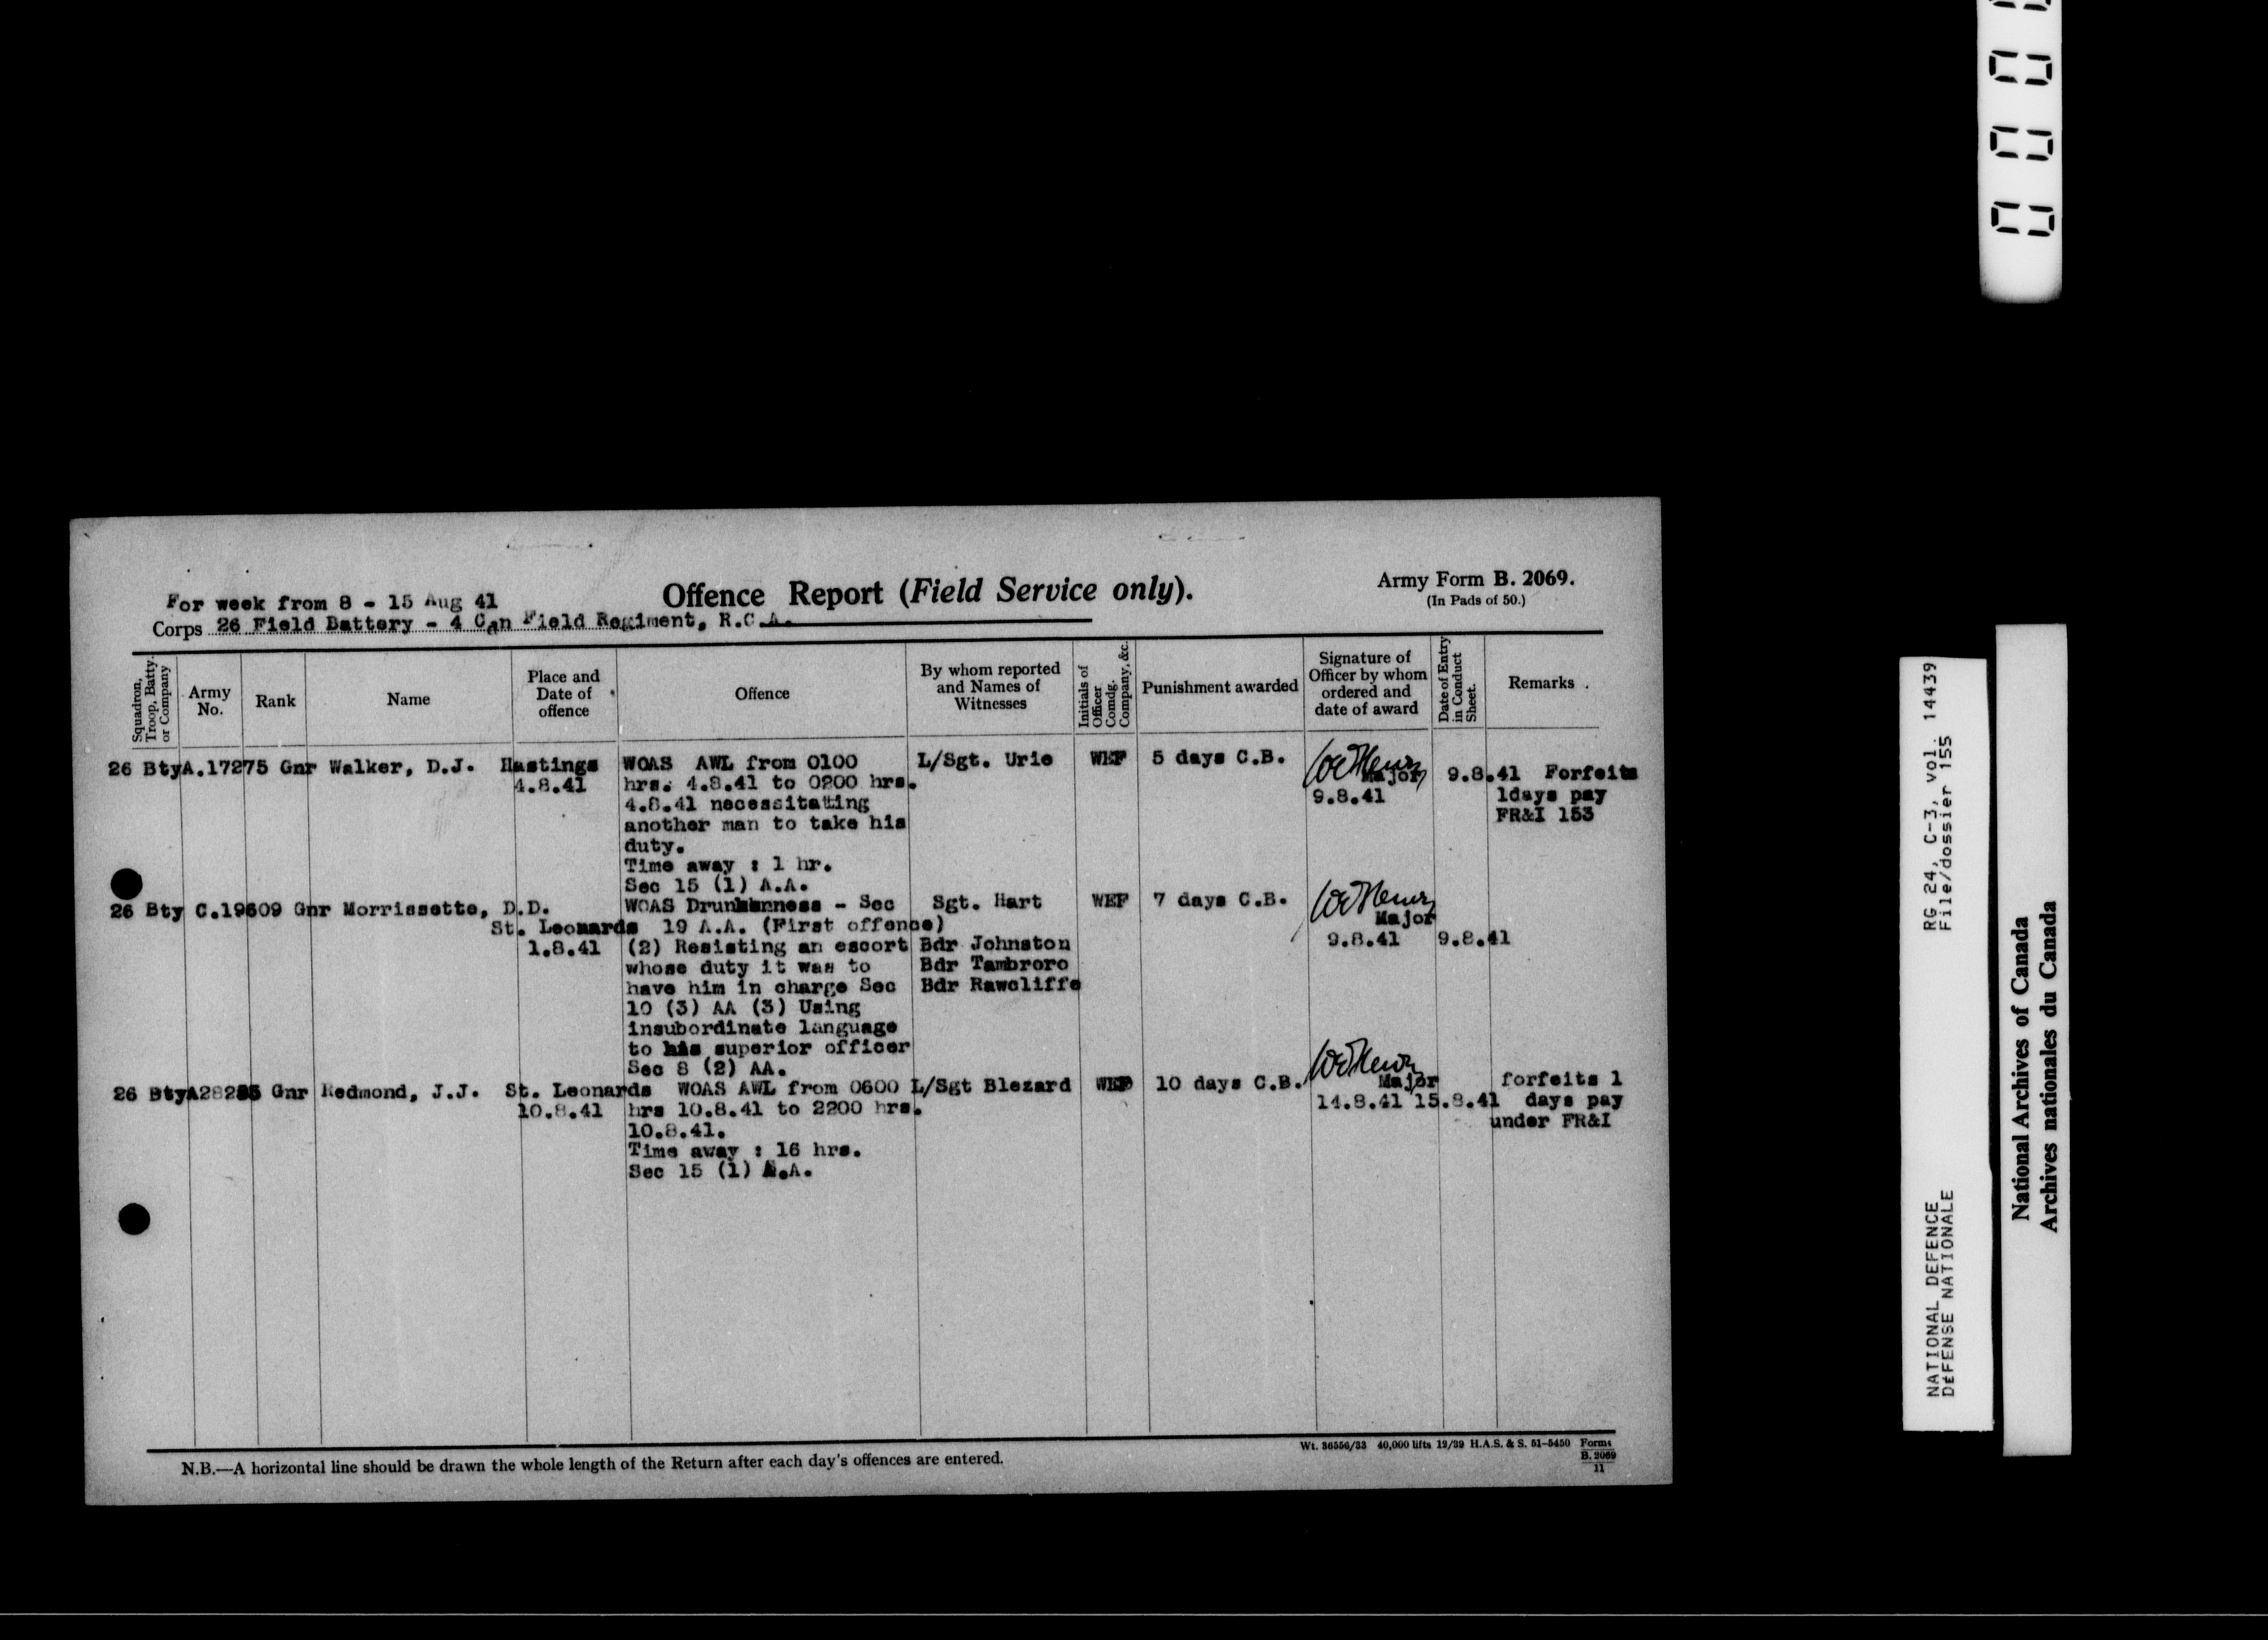 For week from 8 - 15 Aug 41
Offence Report (Field Service only).
Army Form B. 2069.
(In Pads of 50.)
Corps 26 Field Battery - 4 Can Field Regiment, R.C.A.
Squadron, Troop, Batty. or Company
Army No.
Rank
Name
Place and Date of offence
Offence
By whom reported and Names of Witnesses
Initials of Officer Comdg. Company, &c.
Punishment awarded
Signature of Officer by whom ordered and date of award
Date of Entry in Conduct Sheet.
Remarks
26 Bty A.17275 Gnr Walker, D.J. Hastings WOAS AWL from 0100 L/Sgt. Urie WEF 5 days C.B. Major 9.8.41 Forfeits
4.8.41 hrs. 4.8.41 to 0200 hrs. 9.8.41 1days pay
4.8.41 necessitating FR&I 153
another man to take his
duty.
Time away : 1 hr.
Sec 15 (1) A.A.
26 Bty C.19609 Gnr Morrissette, D.D. WOAS Drunkenness - Sec Sgt. Hart WEF 7 days C.B. Major
St. Leonards 19 A.A. (First offence)
1.8.41 (2) Resisting an escort Bdr Johnston 9.8.41 9.8.41
whose duty it was to Bdr Tambroro
have him in charge Sec Bdr Rawcliffe
10 (3) AA (3) Using
insubordinate language
to his superior officer
Sec 8 (2) AA.
26 Bty Gnr Redmond, J.J. St. Leonards WOAS AWL from 0600 L/Sgt Blezard WEF 10 days C.B. Major forfeits 1
10.8.41 hrs 10.8.41 to 2200 hrs. 14.8.41 15.8.41 days pay
10.8.41. under FR&I
Time away : 16 hrs.
Sec 15 (1) A.A.
N.B.—A horizontal line should be drawn the whole length of the Return after each day's offences are entered.
Wt. 36556/33 40,000 lifts 12/39 H.A.S. & S. 51-5450 Forms
B. 2069
11
RG 24, C-3, vol. 14439
File/dossier 155
NATIONAL DEFENCE
DÉFENSE NATIONALE
National Archives of Canada
Archives nationales du Canada